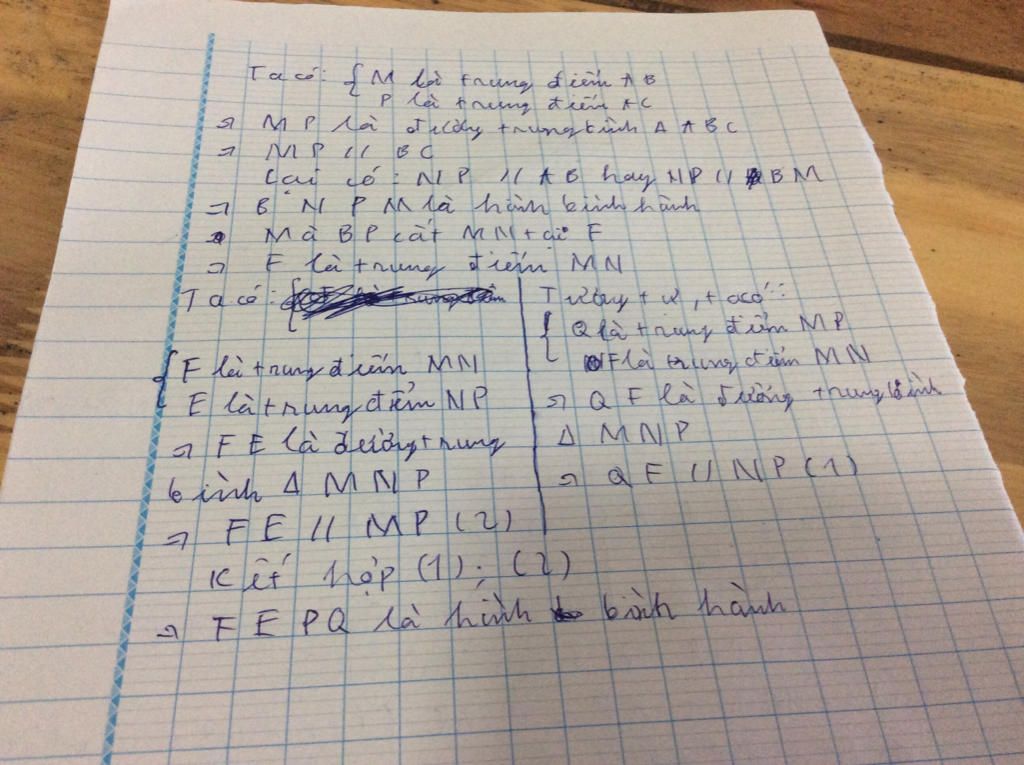 Ta có: { M là trung điểm AB
P là trung điểm AC
⇒ MP là đường trung bình Δ ABC
⇒ MP // BC
Lại có: NP // AB hay NP // BM
⇒ B N P M là hình bình hành
Mà BP cắt MN tại F
⇒ F là trung điểm MN
Ta có: {
{ F là trung điểm MN
E là trung điểm NP
⇒ FE là đường trung
bình Δ MNP
⇒ FE // MP (2)
Tương tự, ta có:
{ Q là trung điểm MP
F là trung điểm MN
⇒ QF là đường trung bình
Δ MNP
⇒ QF // NP (1)
Kết hợp (1); (2)
⇒ FEPQ là hình bình hành